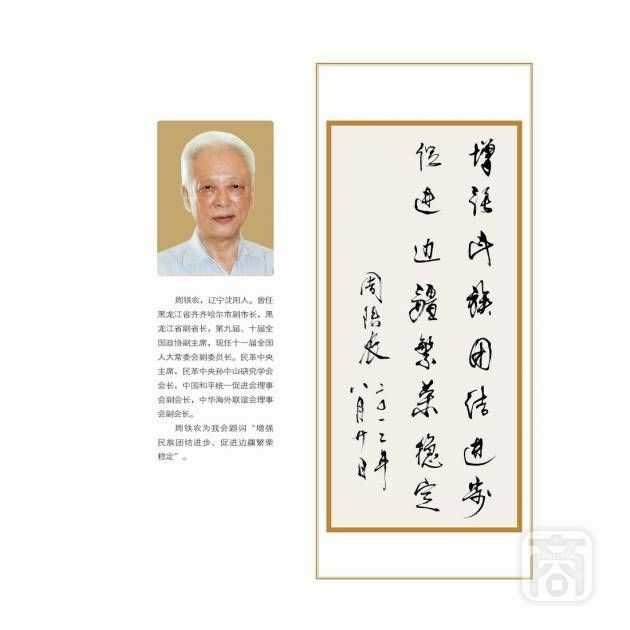 周铁农，辽宁沈阳人。曾任
黑龙江省齐齐哈尔市副市长，黑
龙江省副省长，第九届、十届全
国政协副主席，现任十一届全国
人大常委会副委员长。民革中央
主席，民革中央孙中山研究学会
会长，中国和平统一促进会理事
会副会长，中华海外联谊会理事
会副会长。
周铁农为我会题词“增强
民族团结进步、促进边疆繁荣
稳定”。
增强民族团结进步
促进边疆繁荣稳定
周铁农
二〇一二年
八月廿日
商